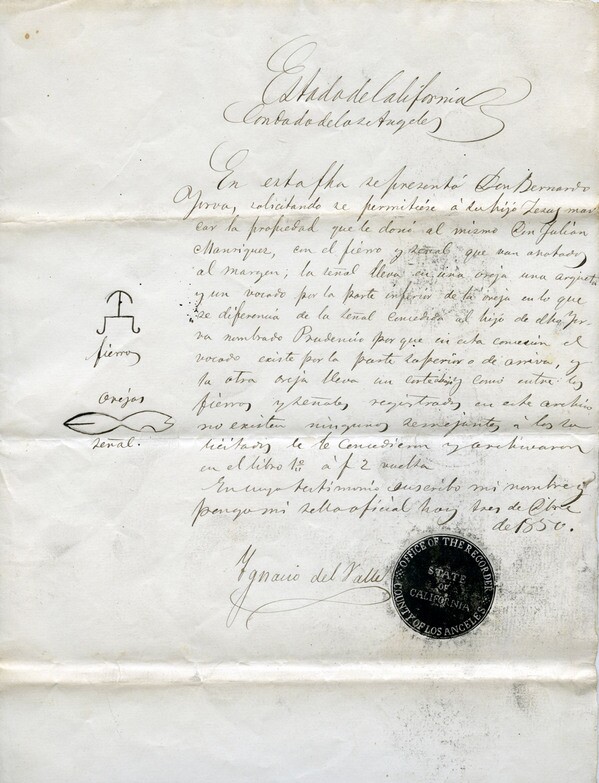 Estado de California
Condado de Los Angeles
En esta fha se presentó Don Bernardo
Yorva, solicitando se permitiése á su hijo Jesus mar
car la propiedad que le donó al mismo Don Julian
Manriquez, con el fierro y señal que van anotados
al margen; la señal lleva en una oreja una
y un vocado por la parte inferior de la oreja en lo que
se diferencia de la señal concedida al hijo de Yor
va nombrado Prudencio por que en esta concesion el
vocado existe por la parte superior o de arriva, y
la otra oreja lleva un como entre los
fierros y señales registrados en este archivo
no existen ningunos semejantes á los so
licitados se le concedieron y archivaron
en el libro 1º á f 2 vuelta
En cuyo testimonio suscribo mi nombre y
pongo mi sello oficial hoy tres de
de 1850.
fierro
orejas
señal.
Ygnacio del Valle
OFFICE OF THE RECORDER
COUNTY OF LOS ANGELES
STATE
OF
CALIFORNIA